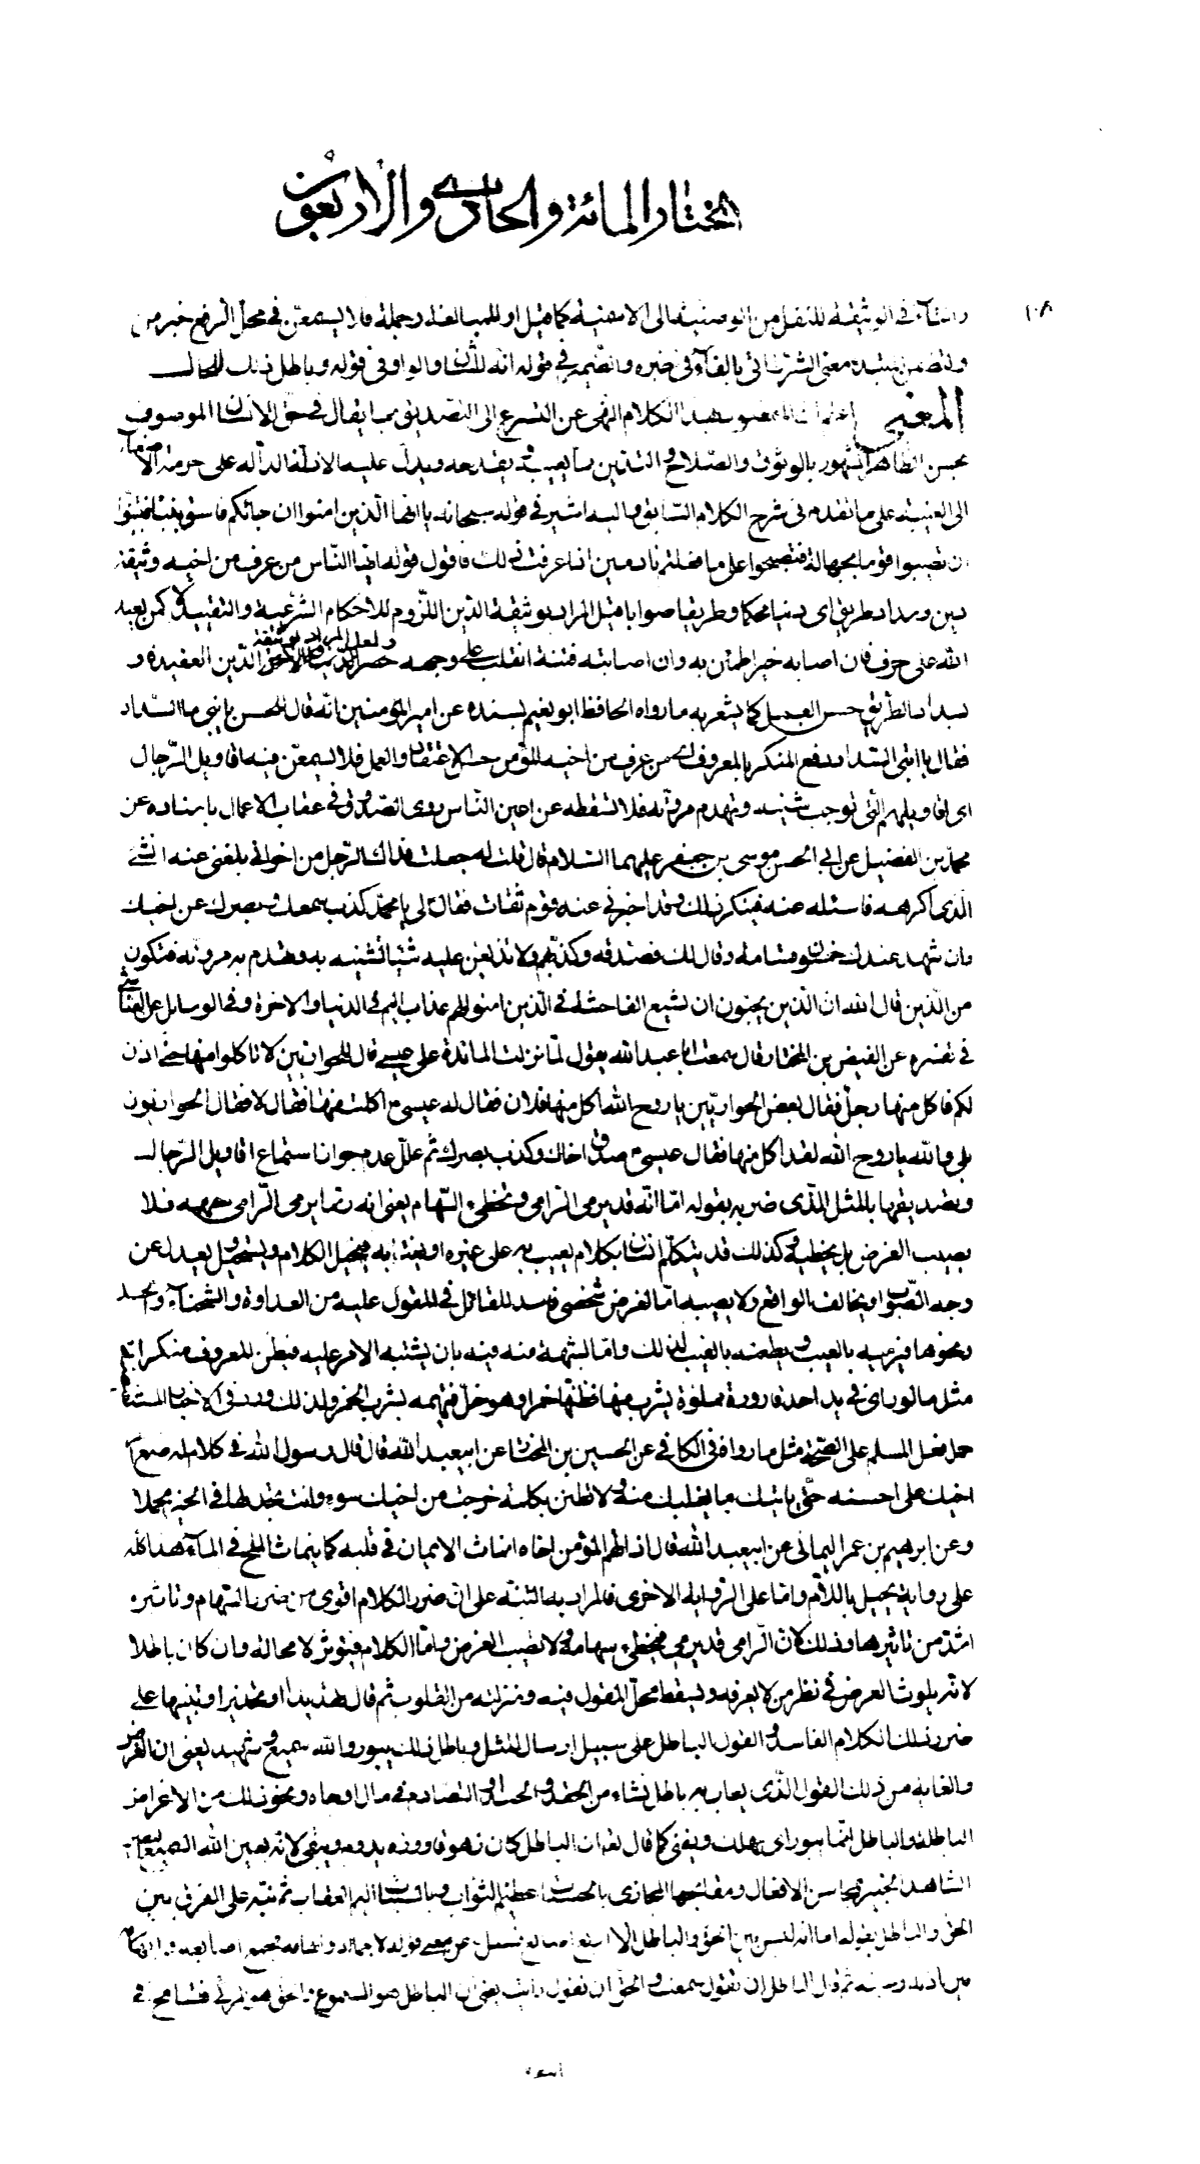 المختار المائة والحادي والاربعون
١٠٨
والتاء في الوثيقة للنقل من الوصفية الى الاسمية كما قيل او للمبالغة وجملة فلا يسمعن في محل الرفع خبر من
معنى الشرط اتى بالفاء في خبره والضمير في قوله انه للشان والواو في قوله وباطل ذلك للحال
المعنى اعلم ان المقصود بهذا الكلام النهى عن التسرع الى التصديق بما يقال في حق الانسان الموصوف
بحسن الظاهر المشهور بالوثوق والصلاح والتدين مما يعيب فيه يقدحه ويدل عليه الادلة الدالة على حرمة الاصغاء
الى الغيبة على ما تقدم في شرح الكلام السابق واليه اشير في قوله سبحانه يا ايها الذين امنوا ان جائكم فاسق بنبأ فتبينوا
ان تصيبوا قوما بجهالة فتصبحوا على ما فعلتم نادمين اذا عرفت ذلك فاقول قوله ايها الناس من عرف من اخيه وثيقة
دين وسداد طريق اى دينا محكما وطريقا صوابا قيل المراد بوثيقة الدين اللزوم للاحكام الشرعية والتقييد لا كمن يعبد
الله على حرف فان اصابه خير اطمئن به وان اصابته فتنة انقلب على وجهه خسر الدنيا والاخرة ولعل المراد بوثيقة الدين العقيدة و
بسداد الطريق حسن العمل كما يشعر به ما رواه الحافظ ابو نعيم بسنده عن امير المؤمنين انه قال للحسن يا بنى ما السداد
فقال يا ابتى السداد دفع المنكر بالمعروف اى من عرف من اخيه المؤمن حسن الاعتقاد والعمل فلا يسمعن فيه اقاويل الرجال
اى اقاويلهم التى توجب شينه وتهدم مروته فلا تسقطه عن اعين الناس روى الصدوق في عقاب الاعمال باسناده عن
محمد بن الفضيل عن ابى الحسن موسى بن جعفر عليهما السلام قال قلت له جعلت فداك الرجل من اخوانى بلغنى عنه الشئ
الذى اكرهه فاسئله عنه فينكر ذلك وقد اخبرنى عنه قوم ثقات فقال لى يا محمد كذب سمعك وبصرك عن اخيك
وان شهد عندك خمسون قسامة وقال لك فصدقه وكذبهم ولا تذيعن عليه شيئا تشينه به وتهدم به مروته فتكون
من الذين قال الله ان الذين يحبون ان تشيع الفاحشة في الذين امنوا لهم عذاب اليم في الدنيا والاخرة وفى الوسائل عن العياشى
في تفسيره عن الفيض بن المختار قال سمعت ابا عبد الله يقول لما نزلت المائدة على عيسى قال للحواريين لا تاكلوا منها حتى اذن
لكم فاكل منها رجل فقال بعض الحواريين يا روح الله اكل منها فلان فقال له عيسى اكلت منها فقال لا فقال الحواريون
بلى والله يا روح الله لقد اكل منها فقال عيسى صدق اخاك وكذب بصرك ثم علل عدم جواز استماع اقاويل الرجال
وتصديقها بالمثل الذى ضربه بقوله اما انه قد يرمى الرامى وتخطئ السهام يعنى انه ربما يرمى الرامى سهمه فلا
يصيب الغرض بل يخطيه وكذلك قد يتكلم انسان بكلام يعيب به على غيره او يغتابه فيحيل الكلام ويستحيل يعدل عن
وجه الصواب او يخالف الواقع ولا يصيبه اما لغرض شخصى فاسد للقائل في المقول عليه من العداوة والشحناء والحسد
ونحوها فيرميه بالعيب ويطعنه بالغيب لذلك واما لشبهة منه فيه بان يشتبه الامر عليه فيظن المعروف منكرا
مثل ما لو راى في يد احد قارورة مملوة يشرب منها فظنها خمرا وهو خل فيتهمه بشرب الخمر ولذلك ورد فى الاخبار المستفيضة
حمل فعل المسلم على الصحة مثل ما رواه في الكافى عن الحسين بن المختار عن ابيعبد الله قال قال رسول الله في كلام له ضع امر
اخيك على احسنه حتى ياتيك ما يغلبك منه ولا تظنن بكلمة خرجت من اخيك سوء وانت تجد لها في الخير محملا
وعن ابرهيم بن عمر اليمانى عن ابيعبد الله قال اذا اتهم المؤمن اخاه انماث الايمان في قلبه كما ينماث الملح في الماء هذا كله
على رواية يحيل باللام واما على الرواية الاخرى فالمراد به التنبيه على ان ضرر الكلام اقوى من ضرر السهام وتاثيره
اشد من تاثيرها وذلك لان الرامى قد يرمى فيخطئ سهامه ولا تصيب الغرض واما الكلام فيؤثر لا محالة وان كان باطلا
لانه يلوث العرض في نظر من لا يعرفه ويسقط محل المقول فيه ومنزلته من القلوب ثم قال تهديدا او تحذيرا وتنبيها على
ضرر ذلك الكلام الفاسد والقول الباطل على سبيل ارسال المثل وباطل ذلك يبور والله سميع وشهيد يعنى ان الغرض
والغاية من ذلك القول الذى يعاب به باطل نشاء من الحقد والحسد او التصادم في مال او جاه ونحو ذلك من الاغراض
الباطلة والباطل انما يبور اى يهلك ويفنى كما قال ان الباطل كان زهوقا ووزره يدوم ويبقى لانه بعين الله السميع العليم
الشاهد الخبير بمحاسن الافعال ومقابحها المجازى بالحسنات عظيم الثواب وبالسيئات اليم العقاب ثم نبه على الفرق بين
الحق والباطل بقوله اما انه ليس بين الحق والباطل الا اربع اصابع فسئل عن معنى قوله فجمع اصابعه
بين اذنه وعينه ثم قال الباطل ان تقول سمعت والحق ان تقول رايت يعنى ان الباطل هو المسموع والحق هو المرئى في